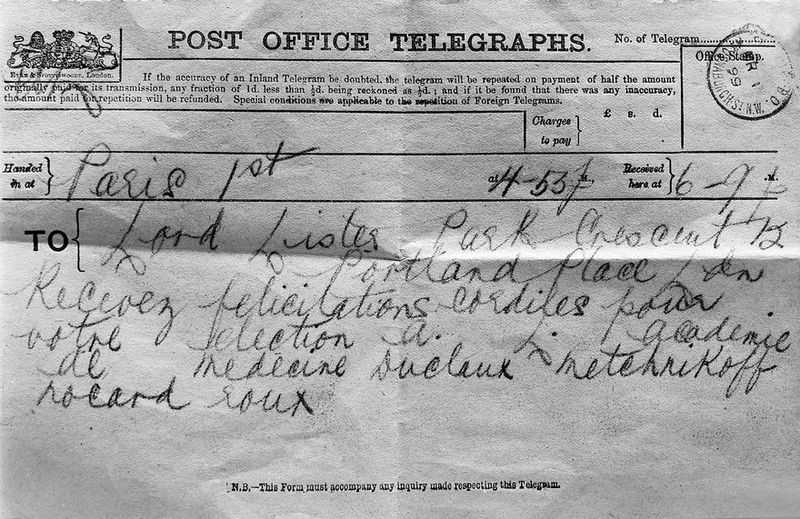 POST OFFICE TELEGRAPHS.
No. of Telegram
Office Stamp.
Eyre & Spottiswoode, London.
If the accuracy of an Inland Telegram be doubted, the telegram will be repeated on payment of half the amount
originally paid for its transmission, any fraction of 1d. less than ½d. being reckoned as ½d.; and if it be found that there was any inaccuracy,
the amount paid for repetition will be refunded. Special conditions are applicable to the repetition of Foreign Telegrams.
Charges to pay £ s. d.
Handed in at Paris 1st at 4-53 p M. Received here at 6-9 p M.
TO Lord Lister Park Crescent 12
Portland Place Ldn
Recevez felicitations cordiles pour
votre election a. L. academie
de medecine Duclaux Metchnikoff
nocard roux
N.B.—This Form must accompany any inquiry made respecting this Telegram.